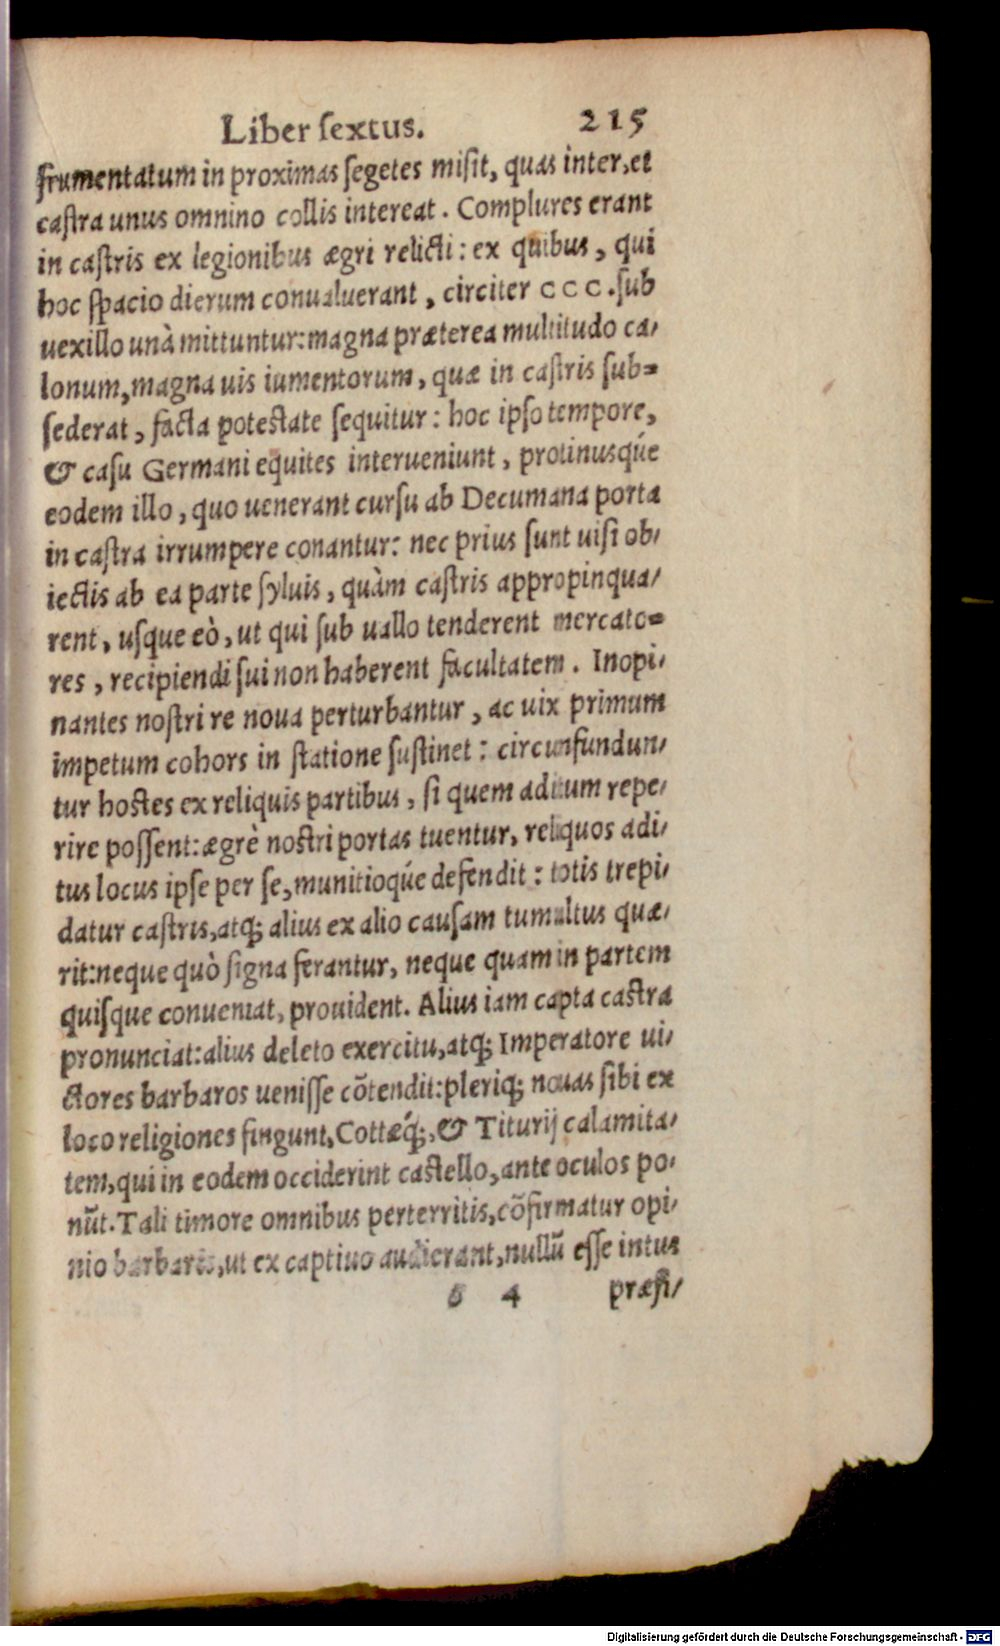 Liber ſextus. 215
frumentatum in proximas ſegetes miſit, quas inter, et
caſtra unus omnino collis intereat. Complures erant
in caſtris ex legionibus ægri relicti: ex quibus, qui
hoc ſpacio dierum conualuerant, circiter CCC. ſub
uexillo unà mittuntur: magna præterea multitudo ca/
lonum, magna uis iumentorum, quæ in caſtris ſub=
ſederat, facta poteſtate ſequitur: hoc ipſo tempore,
& caſu Germani equites interueniunt, protinusq́ue
eodem illo, quo uenerant curſu ab Decumana porta
in caſtra irrumpere conantur: nec prius ſunt uiſi ob/
iectis ab ea parte ſyluis, quàm caſtris appropinqua/
rent, uſque eò, ut qui ſub uallo tenderent mercato=
res, recipiendi ſui non haberent facultatem. Inopi/
nantes noſtri re noua perturbantur, ac uix primum
impetum cohors in ſtatione ſuſtinet: circunfundun/
tur hoſtes ex reliquis partibus, ſi quem aditum repe/
rire poſſent: ægrè noſtri portas tuentur, reliquos adi/
tus locus ipſe per ſe, munitioq́ue defendit: totis trepi/
datur caſtris, atq; alius ex alio cauſam tumultus quæ/
rit: neque quò ſigna ferantur, neque quam in partem
quiſque conueniat, prouident. Alius iam capta caſtra
pronunciat: alius deleto exercitu, atq; Imperatore ui/
ctores barbaros ueniſſe cõtendit: pleriq; nouas ſibi ex
loco religiones fingunt, Cottæq́;, & Titurij calamita/
tem, qui in eodem occiderint caſtello, ante oculos po/
nũt. Tali timore omnibus perterritis, cõfirmatur opi/
nio barbaris, ut ex captiuo audierant, nullũ eſſe intus
4 præſi/
Digitalisierung gefördert durch die Deutsche Forschungsgemeinschaft - DFG